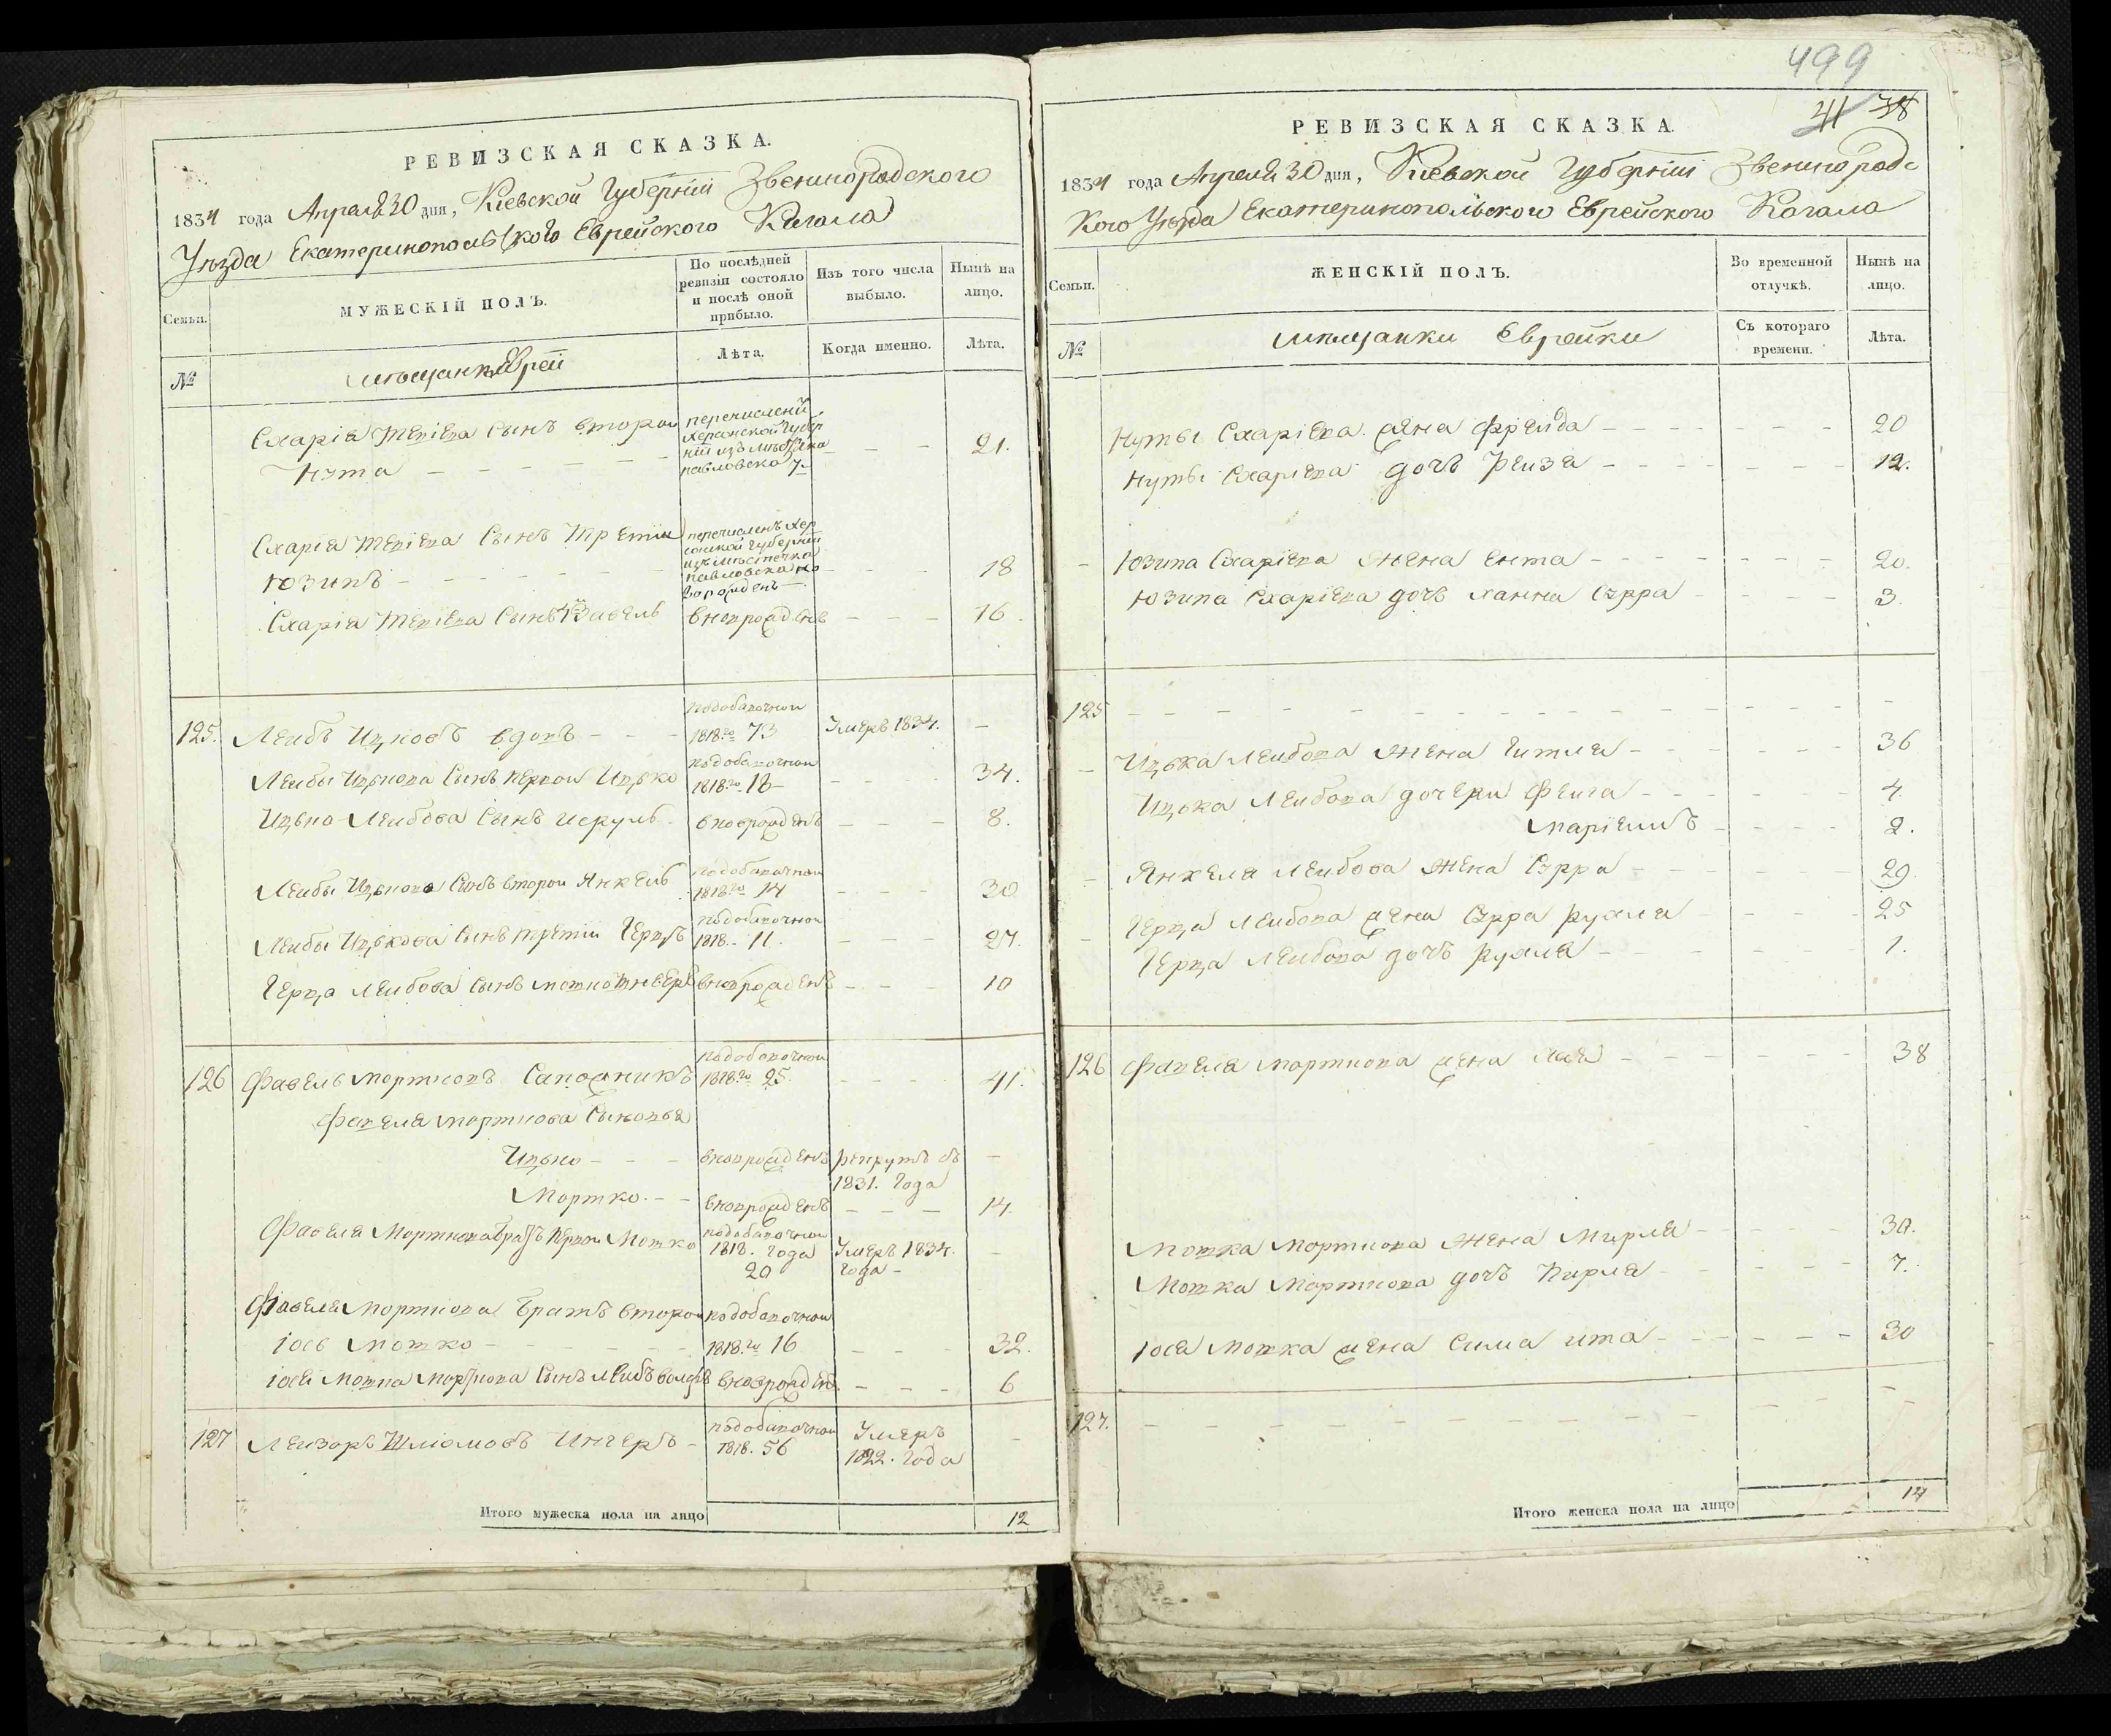 РЕВИЗСКАЯ СКАЗКА.
1834 года Апреля 30 дня, Кіевской Губерніи Звенигородского
Уѣзда Екатеринопольского Еврейского Кагала
Семьи.
МУЖЕСКІЙ ПОЛЪ.
По послѣдней ревизіи состояло и послѣ оной прибыло.
Изъ того числа выбыло.
Нынѣ на лицо.
№
мѣщанъ Еврей
Лѣта.
Когда именно.
Лѣта.
Схаріа Сынъ второй
Нута 21.
перечислены
Херсонской Губер
ніи изъ
павловска 7
Схаріа Сынъ Третій
Юзипъ 18
перечисленъ Хер
сонской Губерніи
изъ мѣстечка
павловска но
ворожденъ
Схаріа Сынъ 4й новорожденъ 16
125. Лейбъ Ицковъ вдовъ подобавочной 1818го 73 Умеръ 1834.
Лейбы Ицькова Сынъ первой Ицько подобавочной 1818го 18 34.
Ицька Лейбова Сынъ новорожденъ 8.
Лейбы Ицькова Сынъ второй Янкель подобавочной 1818го 14 30
Лейбы Ицькова Сынъ третій Герцъ подобавочной 1818. 11. 27.
Герца Лейбова Сынъ новорожденъ 10
126 Фавель Мортковъ Сапожникъ подобавочной 1818го 25. 41.
ФавеляМорткова Сыновья
Ицько новорожденъ рекрутъ съ 1831. Года
Мортко новорожденъ 14.
Фавеля Морткова братъ первой Мотко подобавочной 1818. Года 20 Умеръ 1834. Года
Фавеля Морткова братъ второй подобавочной
Іось Мотко 1818го 16 32.
Іося Мотка Морткова Сынъ Лейбъ новорожденъ 6
127 Лейзоръ Шліомовъ подобавочной 1818. 56 Умеръ 1822. Года
Итого мужеска пола на лицо 12
499
41 38
РЕВИЗСКАЯ СКАЗКА.
1834 года Апреля 30 дня, Кіевской Губерніи Звенигородс
кого Уѣзда Екатеринопольского Еврейского Кагала
Семьи.
ЖЕНСКІЙ ПОЛЪ.
Во временной отлучкѣ.
Нынѣ на лицо.
№
мѣщанки Еврейки
Съ котораго времени.
Лѣта.
Нуты Схаріева жена Фрейда 20
Нуты Схаріева дочь Рейза 12.
Юзипа Схаріева жена Ента 20.
Юзипа Схаріева дочь Ханна Сурра 3.
125
Ицька Лейбова жена Гитля 36
Ицька Лейбова дочери Фейга 4
Маріемъ 2.
Янкеля Лейбова жена Сурра 29.
Герца Лейбова жена Сурра Рухля 25
Герца Лейбова дочь Рухля 1.
126 Фавеля Морткова жена Хая 38
Мотка Морткова жена Мирля 30.
Мотка Морткова дочь Перля 7.
Іося Мотка жена Сима Ита 30
127.
Итого женска пола на лицо 14